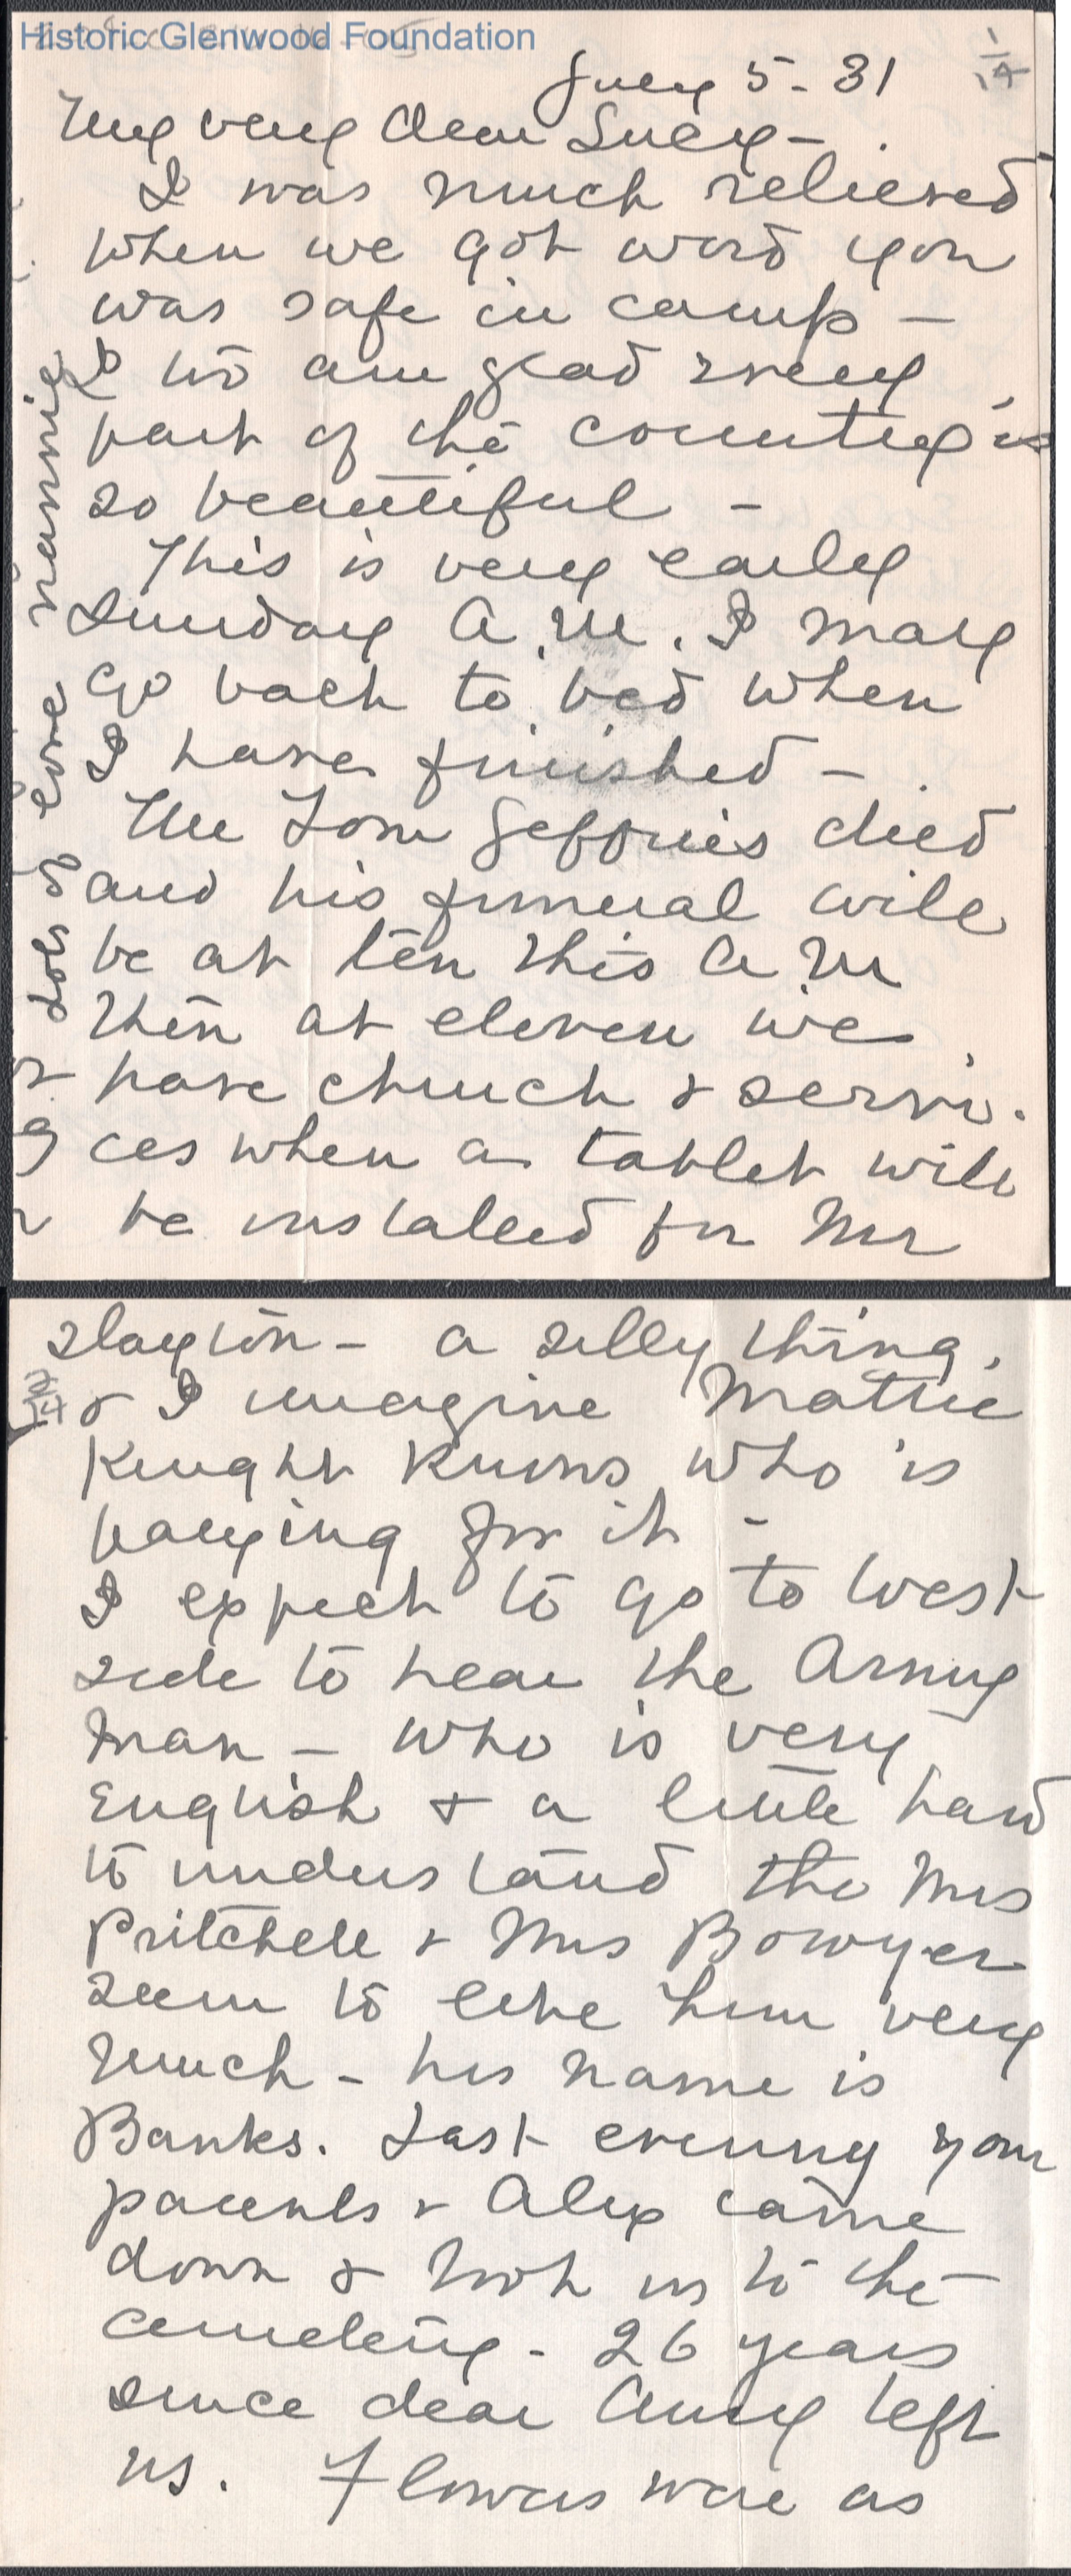 Historic Glenwood Foundation
1/14
July 5 - 31
My very dear Lucy -
I was much relieved
when we got word you
was safe in camp -
I too am glad every
part of the country is
so beautiful -
This is very early
Sunday A.M. I may
go back to bed when
I have finished -
Mr Tom Jeffries died
and his funeral will
be at ten this A M
then at eleven we
have church & servi-
ces when a tablet will
be installed for Mr
dols of love nannie
Slayton - a silly thing.
2/14
& I imagine Mattie
Knight knows who is
paying for it -
I expect to go to West
side to hear the Army
man - who is very
English & a little hard
to understand tho Mrs
Pritchell & Mrs Bowyer
seem to like him very
much - his name is
Banks. Last evening your
parents & Alex came
down & took us to the
cemetery - 26 years
since dear Anny left
us. Flowers were as